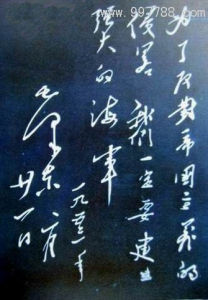 为了反對帝国主义的
侵略 我們一定要建立
强大的海軍
一九五三年
毛泽东 二月
廿一日
www.997788.com